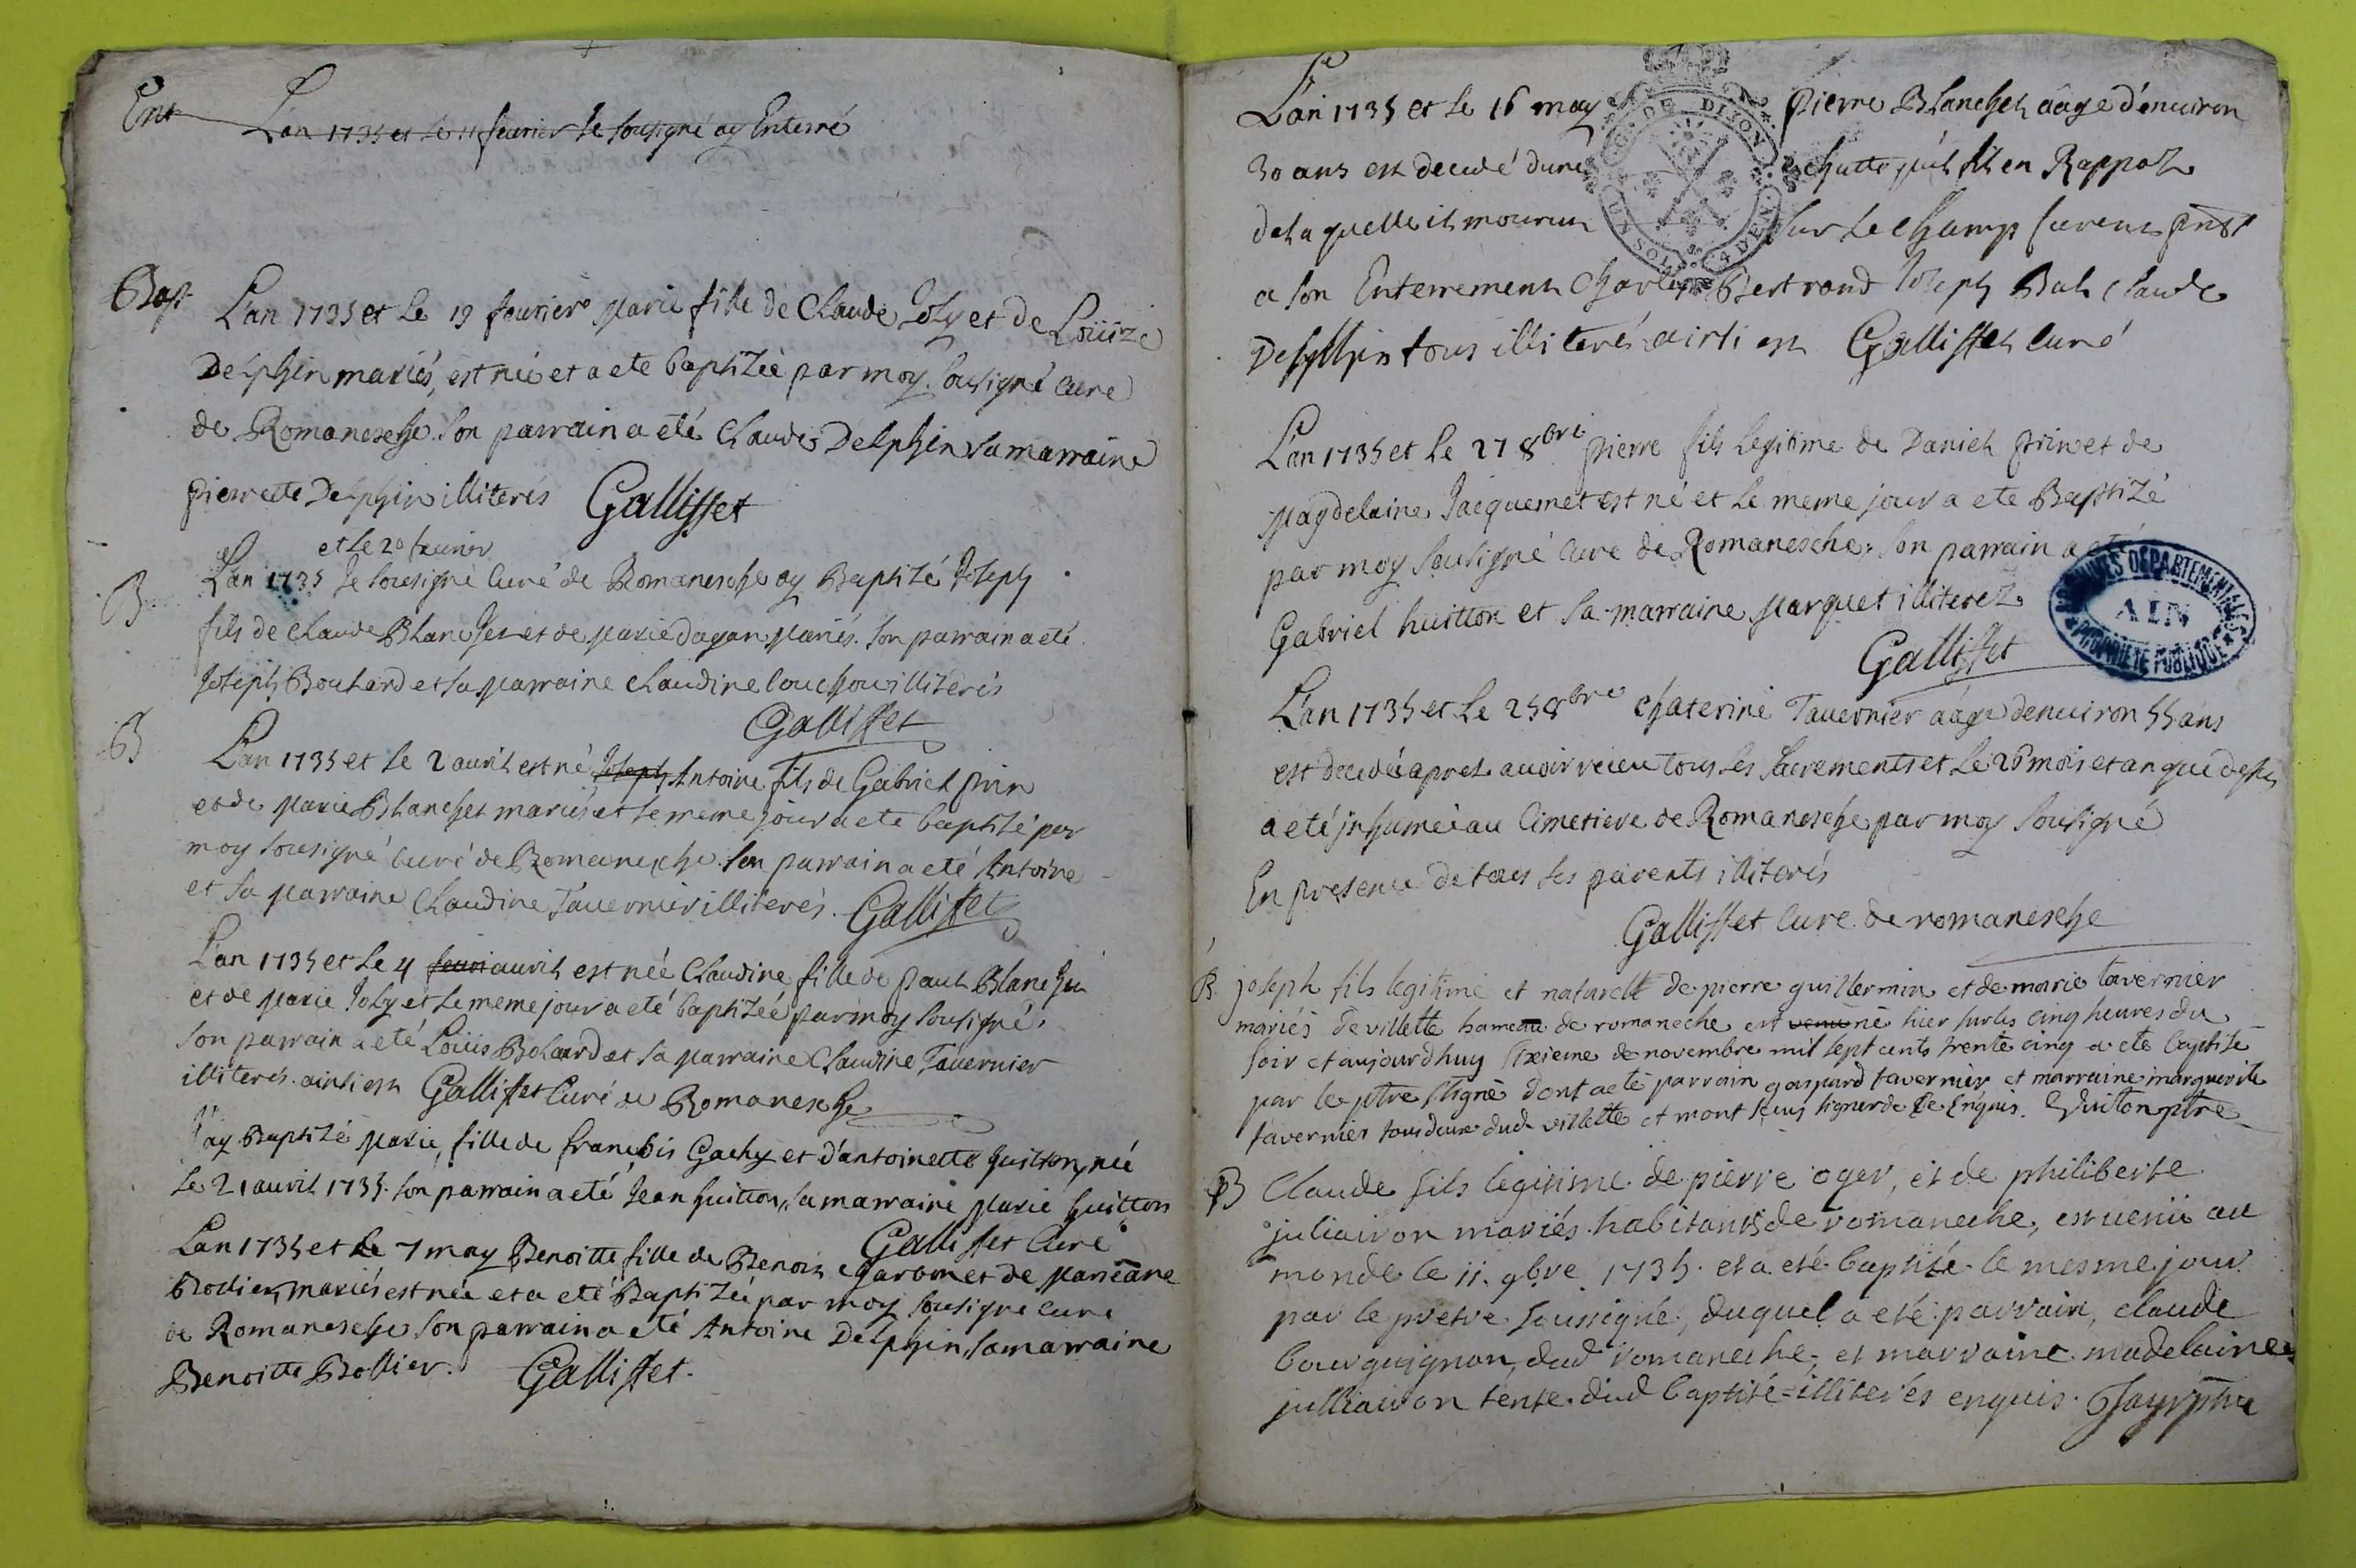 Ent
L'an 1735 et le 11 feurier Je sousigné ay Enterré
Bap
L'an 1735 et Le 19 feurier Marie fille de Claude Joly et de Loüize
Delphin mariés, est née et a ete baptizée par moy sousigné cure
de Romanesche son parrain a eté Claude Delphin sa marraine
pierrette Delphin illiterés Gallisset
et le 20 feurier
B
L'an 1735 Je sousigné Curé de Romanesche ay Baptizé Joseph
fils de Claude Blanchet et de Marie dagan Mariés. son parrain a eté
Joseph Bouhard et sa Marraine Claudine illiterés
Gallisset
B
L'an 1735 et le 2 auril est né Joseph Antoine fils de Gabriel prin
et de Marie Blanchet mariés et le meme jour a ete baptizé par
moy sousigné Curé de Romanesche son parrain a eté Antoine
et sa Marraine Claudine Tauernier illiterés. Gallisset
L'an 1735 et Le 4 feuri auril est née Claudine fille de paul Blanchet
et de Marie Joly et le meme jour a eté baptizée par moy sousigné.
son parrain a eté Loüis Bohard et sa Marraine Claudine Tauernier
illiterés. ainsi est Gallisset Curé de Romanesche
J'ay Baptizé Marie, fille de francois Gachy et d'antoinette huitton, née
Le 21 auril 1735. son parrain a eté Jean huitton, sa marraine Marie huitton
Gallisset Curé
Lan 1735 et Le 7 may Benoitte fille de Benoit Charbon et de Marieane
Bollier, mariés est née et a eté Baptizée par moy sousigné cure
de Romanesche son parrain a eté Antoine Delphin, sa marraine
Benoitte Bollier. Gallisset.
L'an 1735 et le 16 may pierre Blanchet aage d'enuiron
30 ans est decedé dune chutte qu'il fit en
de la quelle il mourut sur le champ furent pnst
a son Enterrement Charles Bertrand Joseph Buh Claude
Delphin tous illiterés ainsi est Gallisset Curé
G. DE DIJON
UN SOL 4 DEN
L'an 1735 et Le 27 8bre pierre fils Legitime de Daniel prin et de
Magdelaine Jacquemet est né et le meme jour a ete Baptizé
par moy sousigné Cure de Romanesche. son parrain a eté
Gabriel huitton et sa marraine Marguet illiterez
Gallisset
ARCHIVES DEPARTEMENTALES
AIN
PROPRIETE PUBLIQUE
L'an 1735 et Le 25 8bre Chaterine Tauernier aage denuiron 55 ans
est decedée aprez auoir receu tous les sacrements et Le 26 mois et an que dessus
a eté inhumée au Cimetiere de Romanesche par moy sousigné
En presence de tous ses parents illiterés
Gallisset Cure de romanesche
B. joseph fils legitime et naturelle de pierre guillermin et de marie tavernier
mariés de villette hameau de romaneche est venu né hier sur les cinq heures du
soir et aujourd'huy sixieme de novembre mil sept cents trente cinq a ete baptisé
par le ptre ssigné dont a eté parrain gaspard tavernier et marraine marguerite
tavernier tous deux dud villette et n'ont sceus signer de ce Enquis. huiton ptre
B Claude fils legitime de pierre oger, et de philiberte
juliairon mariés habitants de romaneche, est uenu au
monde le 11. 9bre 1735. et a eté baptisé le mesme jour
par le pretre soussigné, duquel a eté parrain, claude
bourguignon, dud romaneche, et marraine madelaine
julliairon tente dud baptisé illiterés enquis.